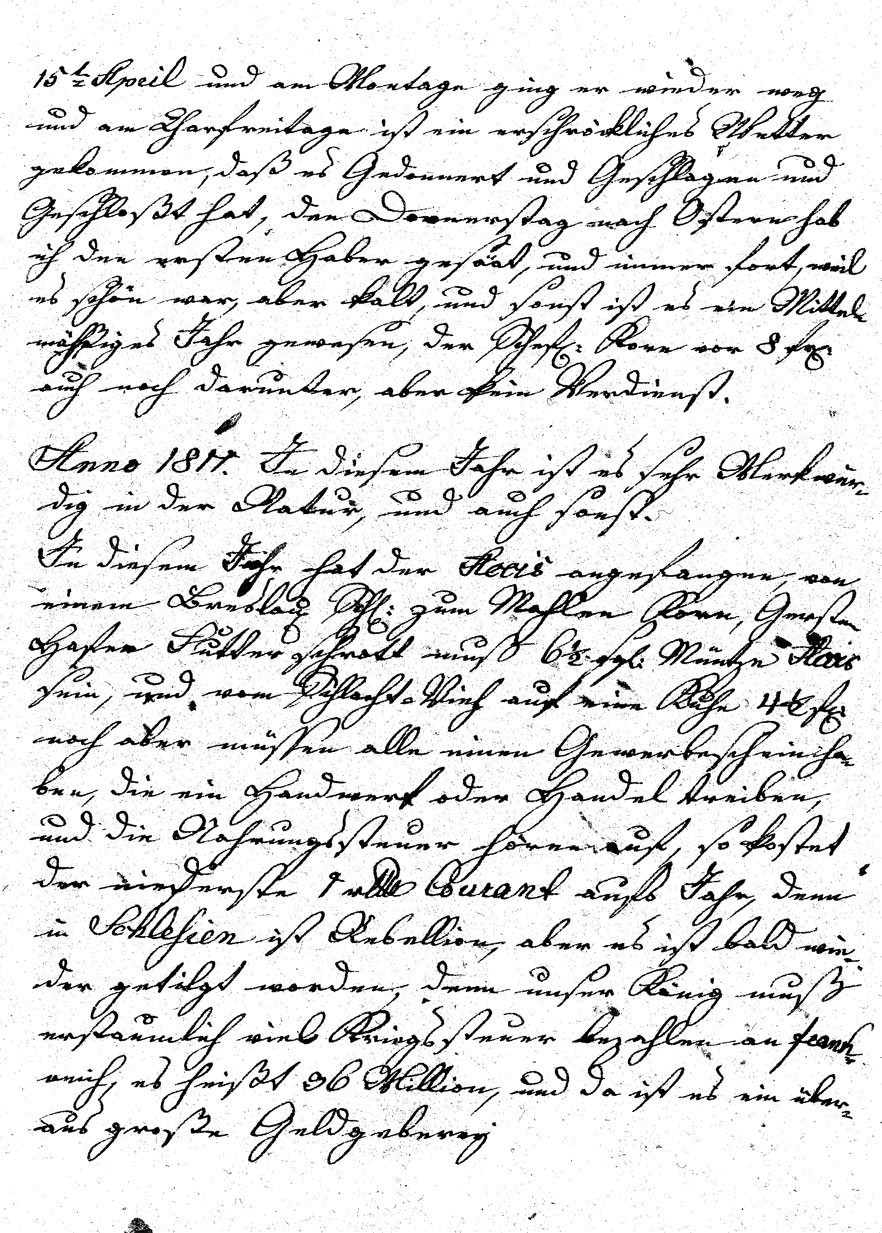 15 t April und am Montage ging er wieder weg
und am Charfreitage ist ein erschröckliches Wetter
gekommen, daß es Gedonnert und Geschlagen und
Geschloßt hat, den Donnerstag nach Ostern hab
ich den ersten Haber gesäät, und immer fort, weil
es schön war, aber kalt, und sonst ist es ein Mittel-
mäßiges Jahr gewesen, der Schefl: Korn vor 8 fl:
auch noch darunter, aber kein Verdienst.
Anno 1811. In diesem Jahr ist es sehr Merkwür-
dig in der Natur, und auch sonst.
In diesem Jahr hat der Accis angefangen, von
einem Breslau Schfl: zum Mahlen Korn, Gersten
Hafer Futter schrott muß 6½ sgl: Müntze Accis
sein, und vom Schlacht-Vieh auf eine Kuhe 4½ fl:
noch aber müssen alle einen Gewerbeschein ha-
ben, die ein Handwerk oder Handel treiben,
und die Nahrungssteuer hören auf, so kostet
der niederste 1 rthl Courant aufs Jahr, denn
in Schlesien ist Rebellion, aber es ist bald wie-
der getilgt worden, denn unser König muß
erstaunlich viel Kriegssteuer bezahlen an frank-
reich, es heißt 36 Million, und da ist es ein über-
aus große Geldgeberey